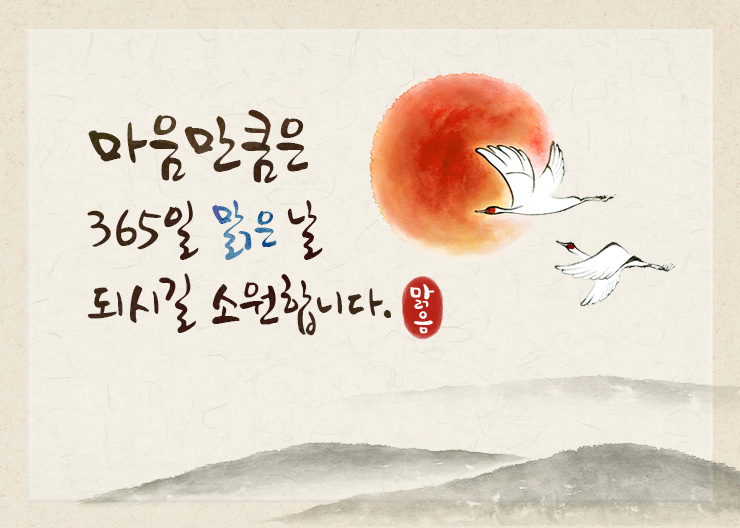 마음만큼은
365일 맑은 날
되시길 소원합니다.
맑음